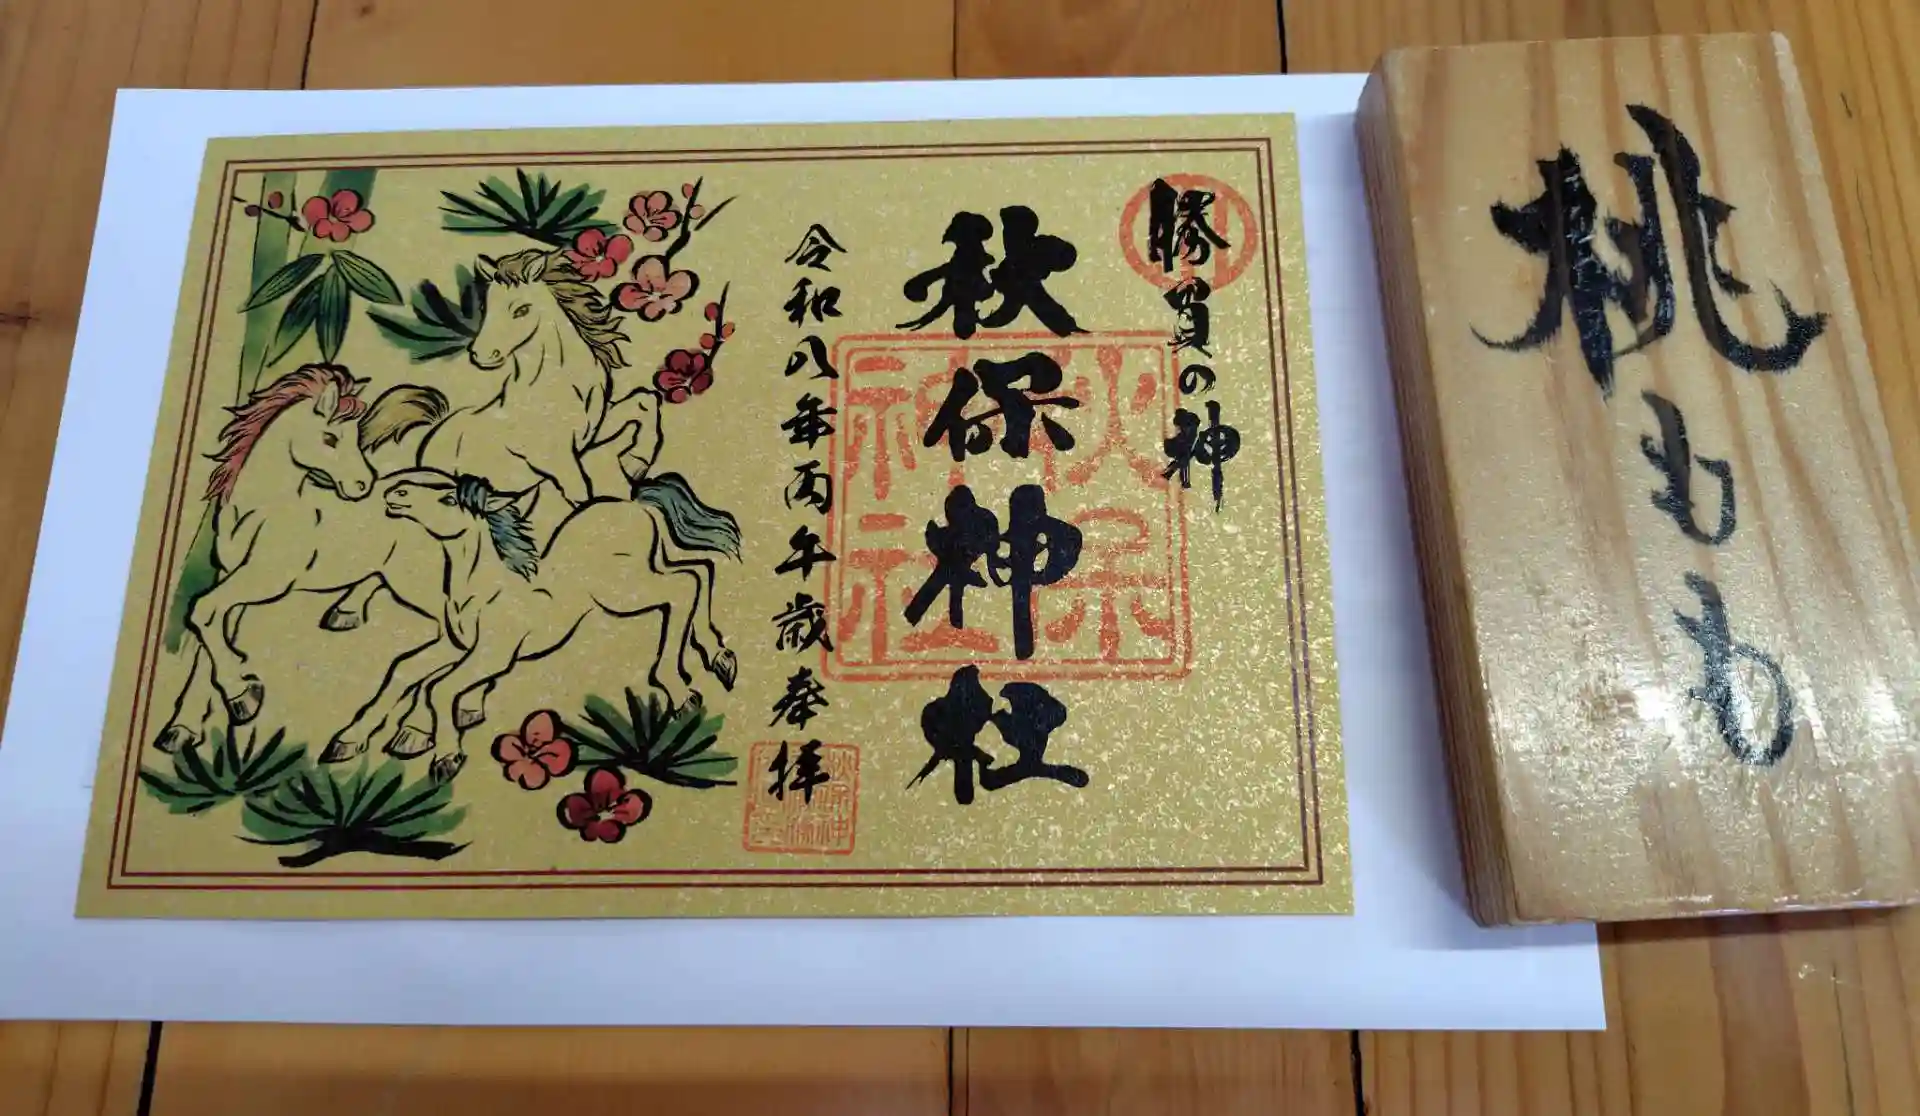 桃
もも
勝負の神
秋保神社
秋保
神社
令和八年丙午歳奉拝